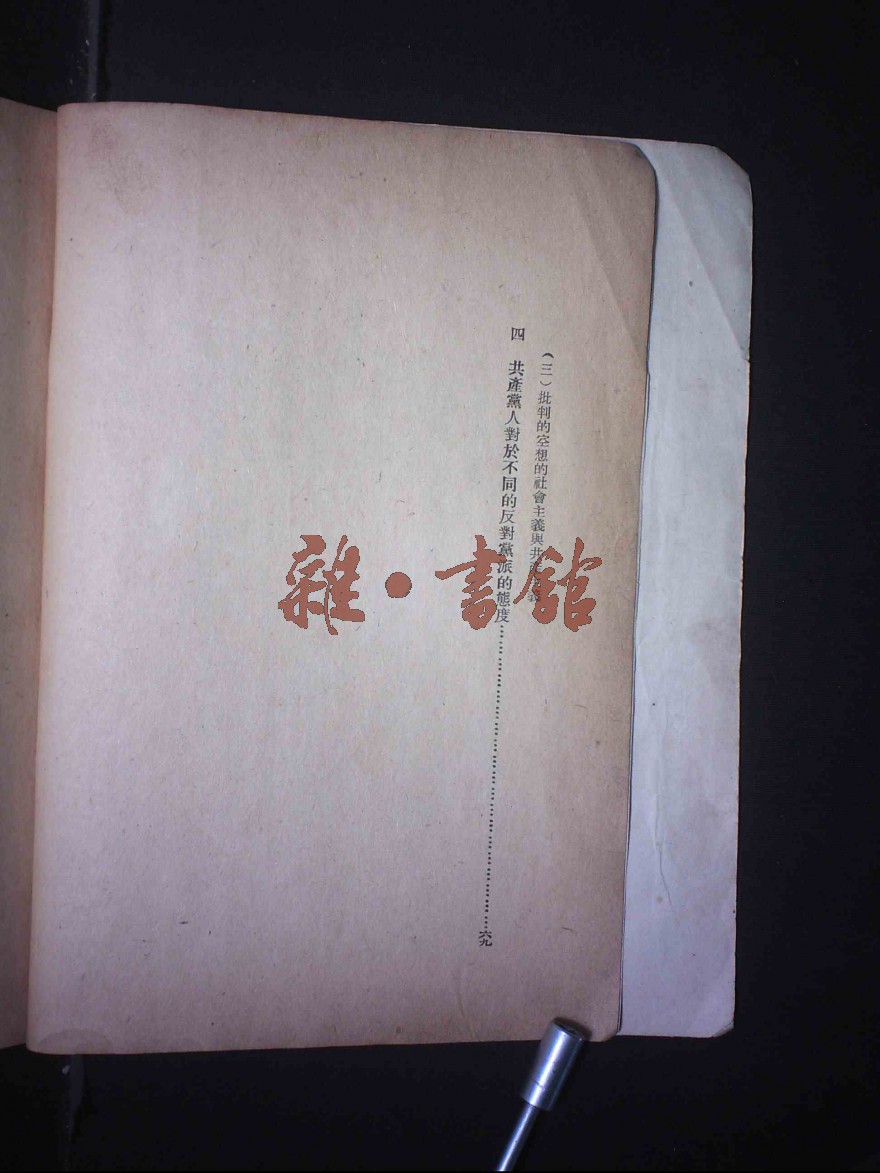 (三)批判的空想的社會主義與共產主義
四 共產黨人對於不同的反對黨派的態度……六九
雜·書館